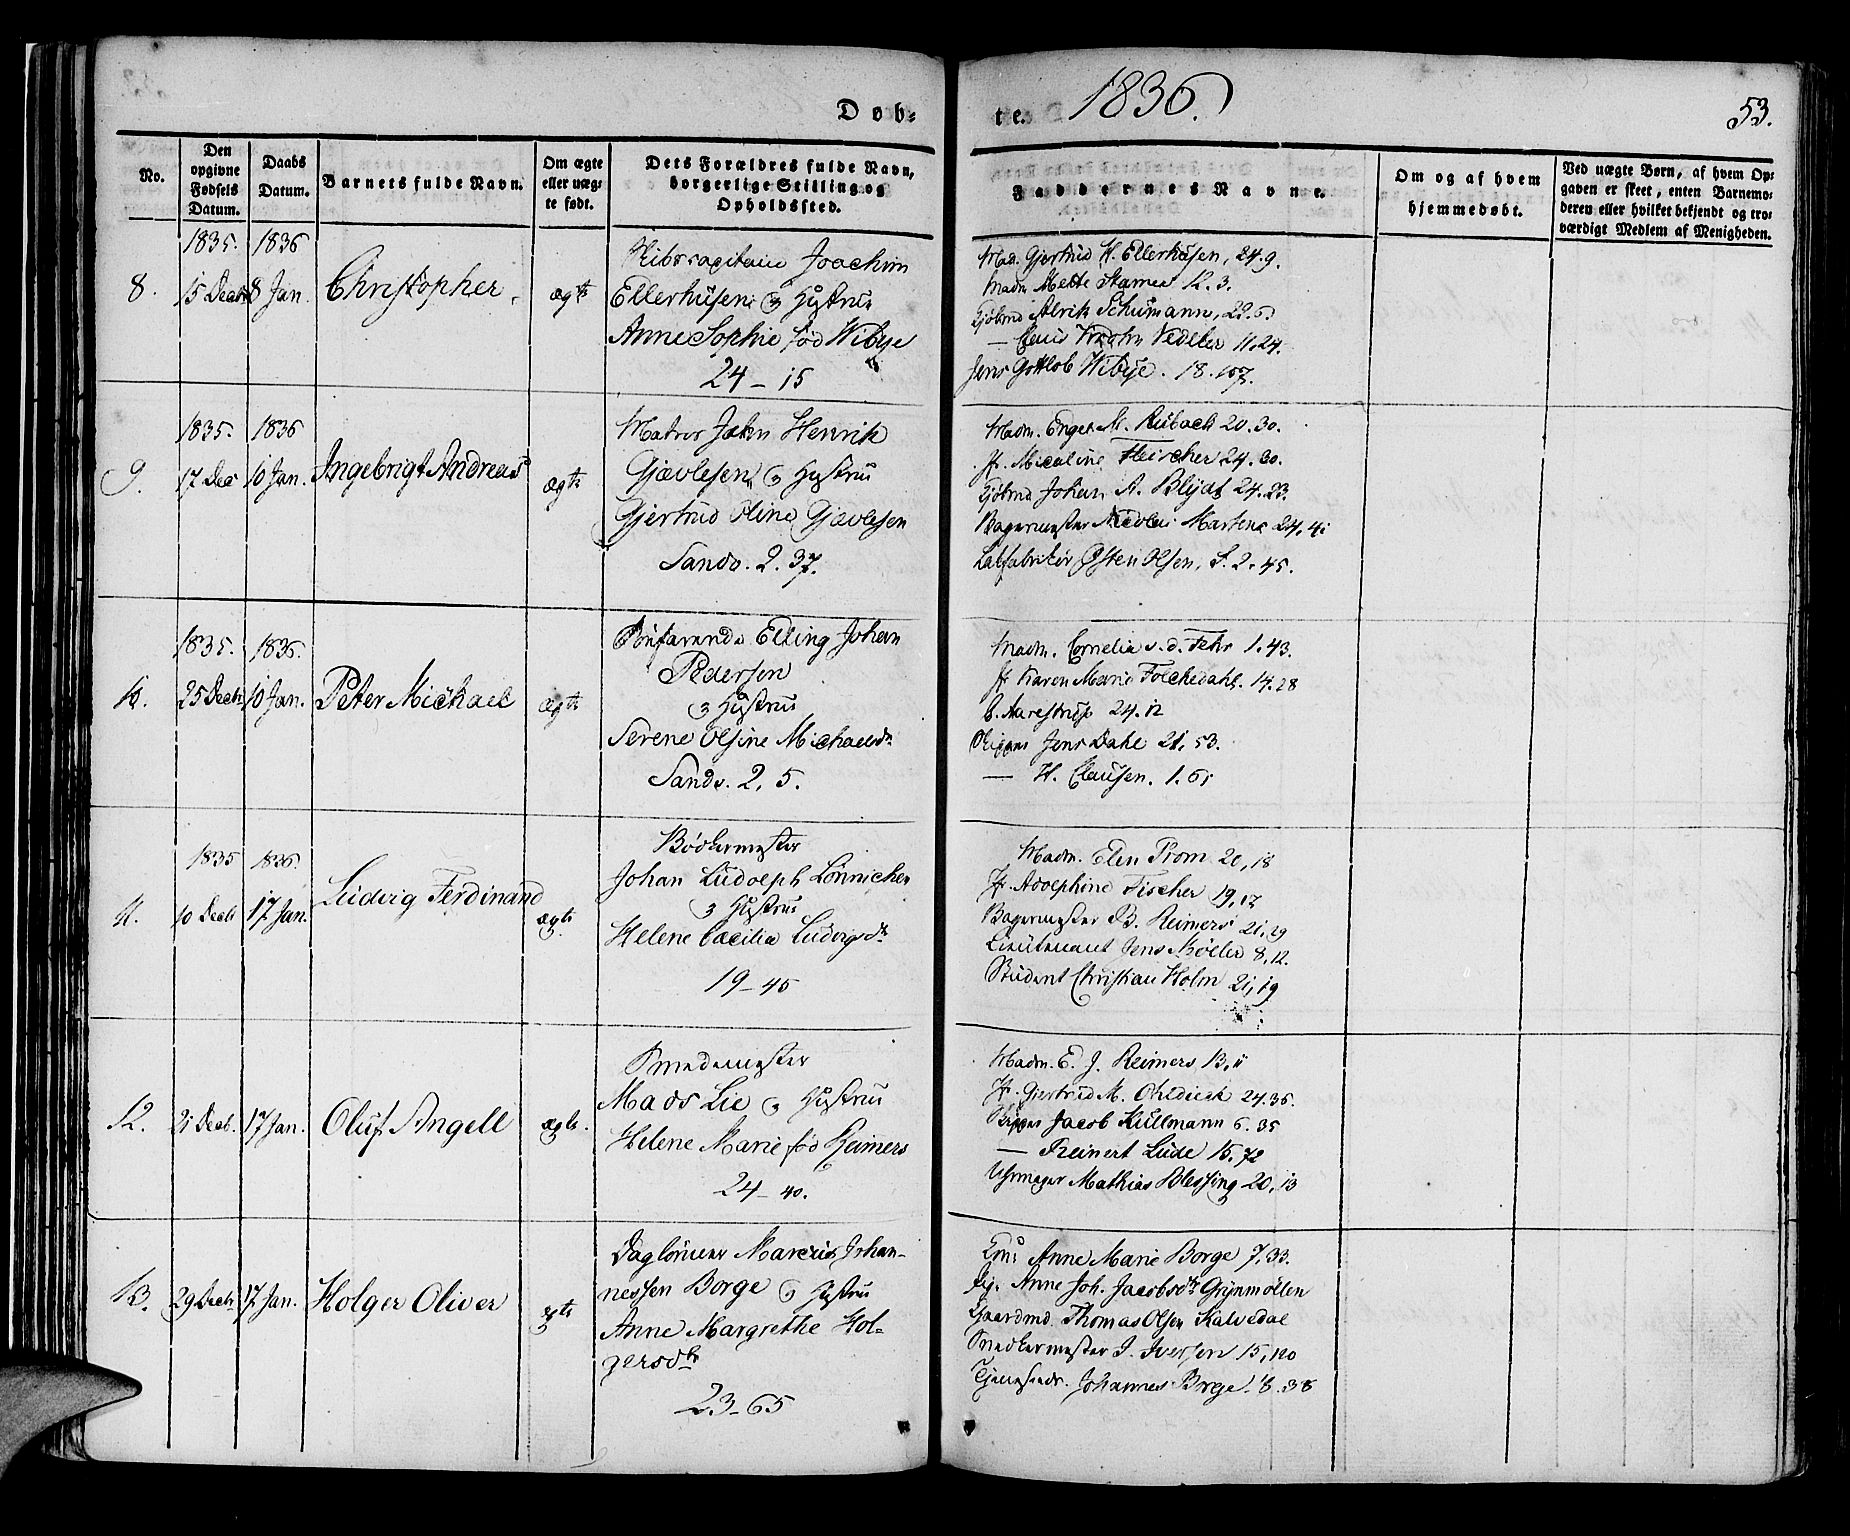 Døb-
te. 1836.
53.
No.
Den opgivne Fødsels Datum.
Daabs Datum.
Barnets fulde Navn.
Om ægte eller uægte født.
Dets Forældres fulde Navn, borgerlige Stilling og Opholdssted.
Faddernes Navne.
Om og af hvem hjemmedøbt.
Ved uægte Børn, af hvem Opgaven er skeet, enten Barnemoderen eller hvilket bekjendt og troværdigt Medlem af Menigheden.
8.
1835. 15 Decbr
1836 8 Jan.
Christopher
ægte
Skibscapitain Joachim
Ellerhusen & Hustrue
Anne Sophie fød Wibye
24 - 15
Mad. Gjertrud H. Ellerhusen, 24.9.
Madm Mette Stamer 12.3.
Kjøbmd Alrik Schumann, 22.6
— Claus Krohn Vedeler 11.24.
Jens Gottlob Wibye. 18.107.
9.
1835. 17 Dec
1836 10 Jan.
Ingebrigt Andreas
ægte
Matros John Henrik
Gjævlesen & Hustrue
Gjertrud Oline Gjævlesen
Sandv. 2. 37.
Madm. Engel M. Rubach 20.30.
Jfr. Micaline Fleischer 24.30.
Kjøbmd Johan A. Blydt 24.23.
Bagermester Nicolai Martens 24.41
Østen Olsen, S. 2. 45.
10.
1835. 25 Decbr
1836. 10 Jan.
Peter Michael
ægte
Søefarende Elling Johan
Pedersen
& Hustrue
Serene Olsine Michaelsdr
Sandv. 2. 5.
Madm. Cornelia v. d. Fehr 1.43.
Jfr Karen Marie Folckedahl. 14.28
C. Aarestrup 24.12
Skipper Jens Dahl 21, 53.
— H. Clausen. 1. 61
11.
1835 10 Decbr
1836. 17 Jan.
Ludvig Ferdinand
ægte.
Bødkermester
Johan Ludolph Lønnichen
& Hustrue
Helene Cæcilia Ludvigsdr
19 - 45
Madm. Elen Prom 20, 18
Jfr. Adolphine Fischer 19, 17
Bagermester B. Reimers 21, 19
Lieutenant Jens Møller 8, 12.
Student Christian Holm 21, 19
12.
21 Decb.
17 Jan.
Oluf Angell
ægte.
Smedemester
Mads Lie & Hustrue
Helene Marie fød Reimers
24 - 40.
Madm. E. J. Reimers 13, 11
Jfr. Gjertrud M. Ohldieck 24.35.
Skipper Jacob Kullmann 6. 35
— Freinert Lude 15. 72
Uhrmager Mathias Blessing 20, 13
13.
29 Decbr
17 Jan.
Holger Oliver
ægte
Daglønner Marcus Johan-
nessen Borge & Hustrue
Anne Margrethe Hol-
gersdtr
23 - 65
Anne Marie Borge 7, 33.
Pig. Anne Joh. Jacobsdtr Grynmøllen
Gaardmd. Thomas Olsen Kalvedal
Snedkermester J. Iversen 15, 120
Johannes Borge. 8. 38